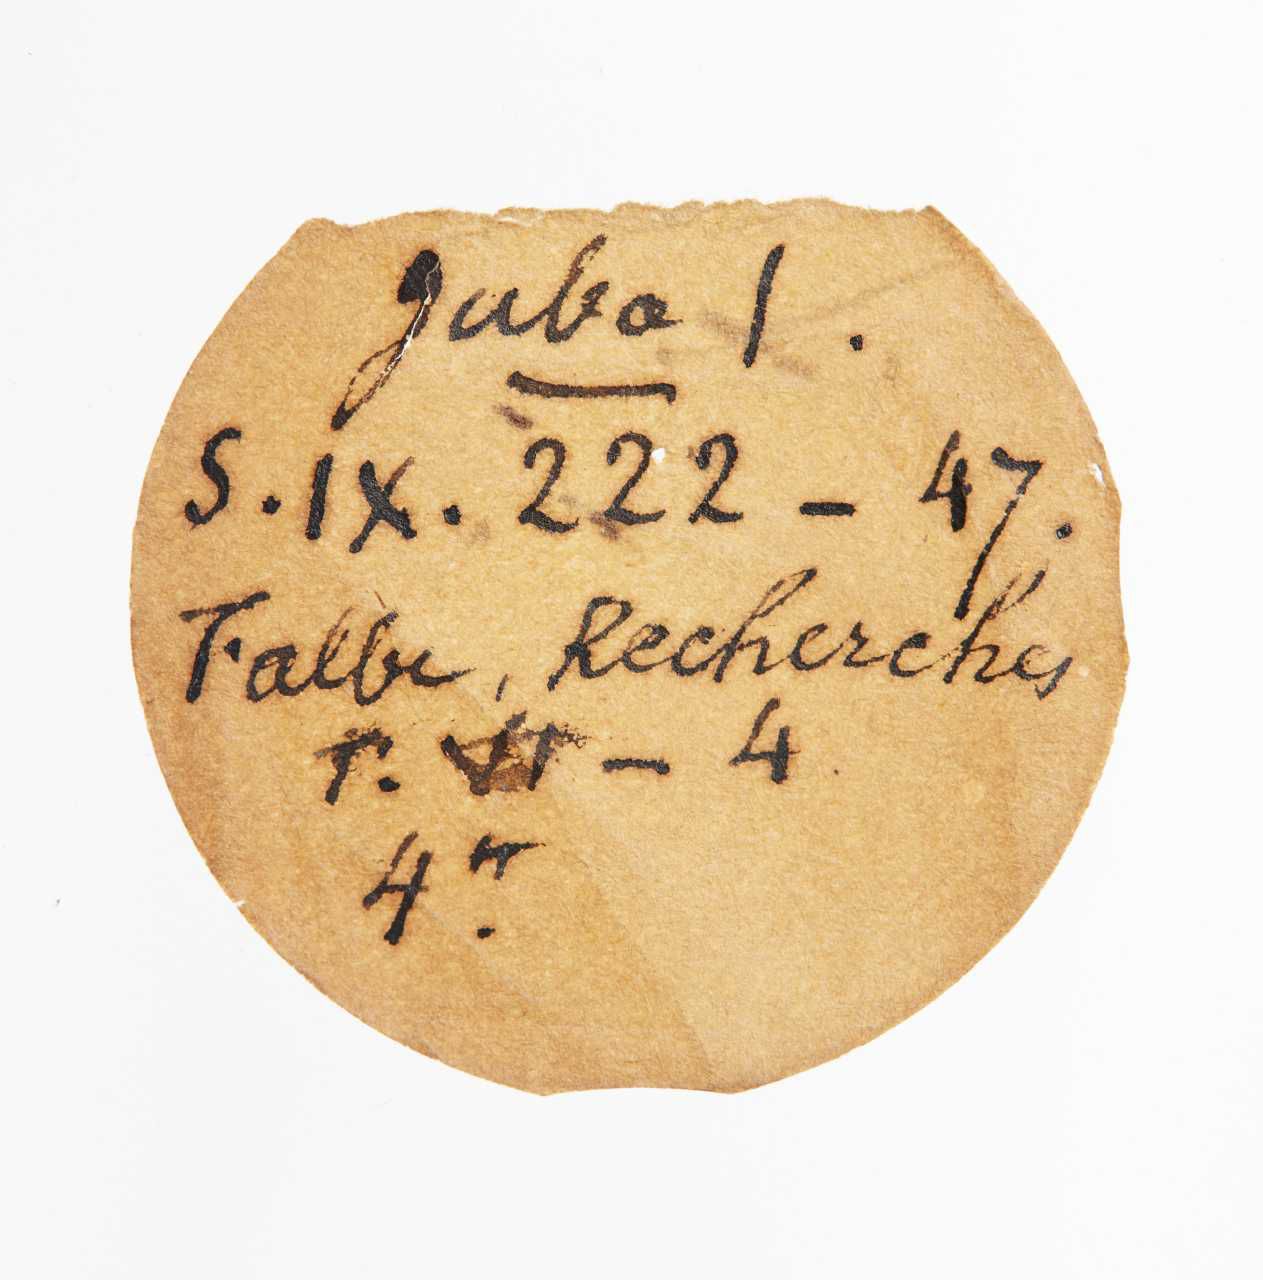 Juba I.
S. IX. 222 – 47.
Falbe, Recherches
T. VI – 4
4".